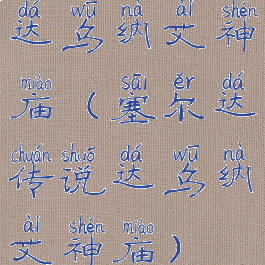 dá wū nà ài shén
达乌纳艾神
miào sāi ěr dá
庙（塞尔达
chuán shuō dá wū nà
传说达乌纳
ài shén miào
艾神庙）